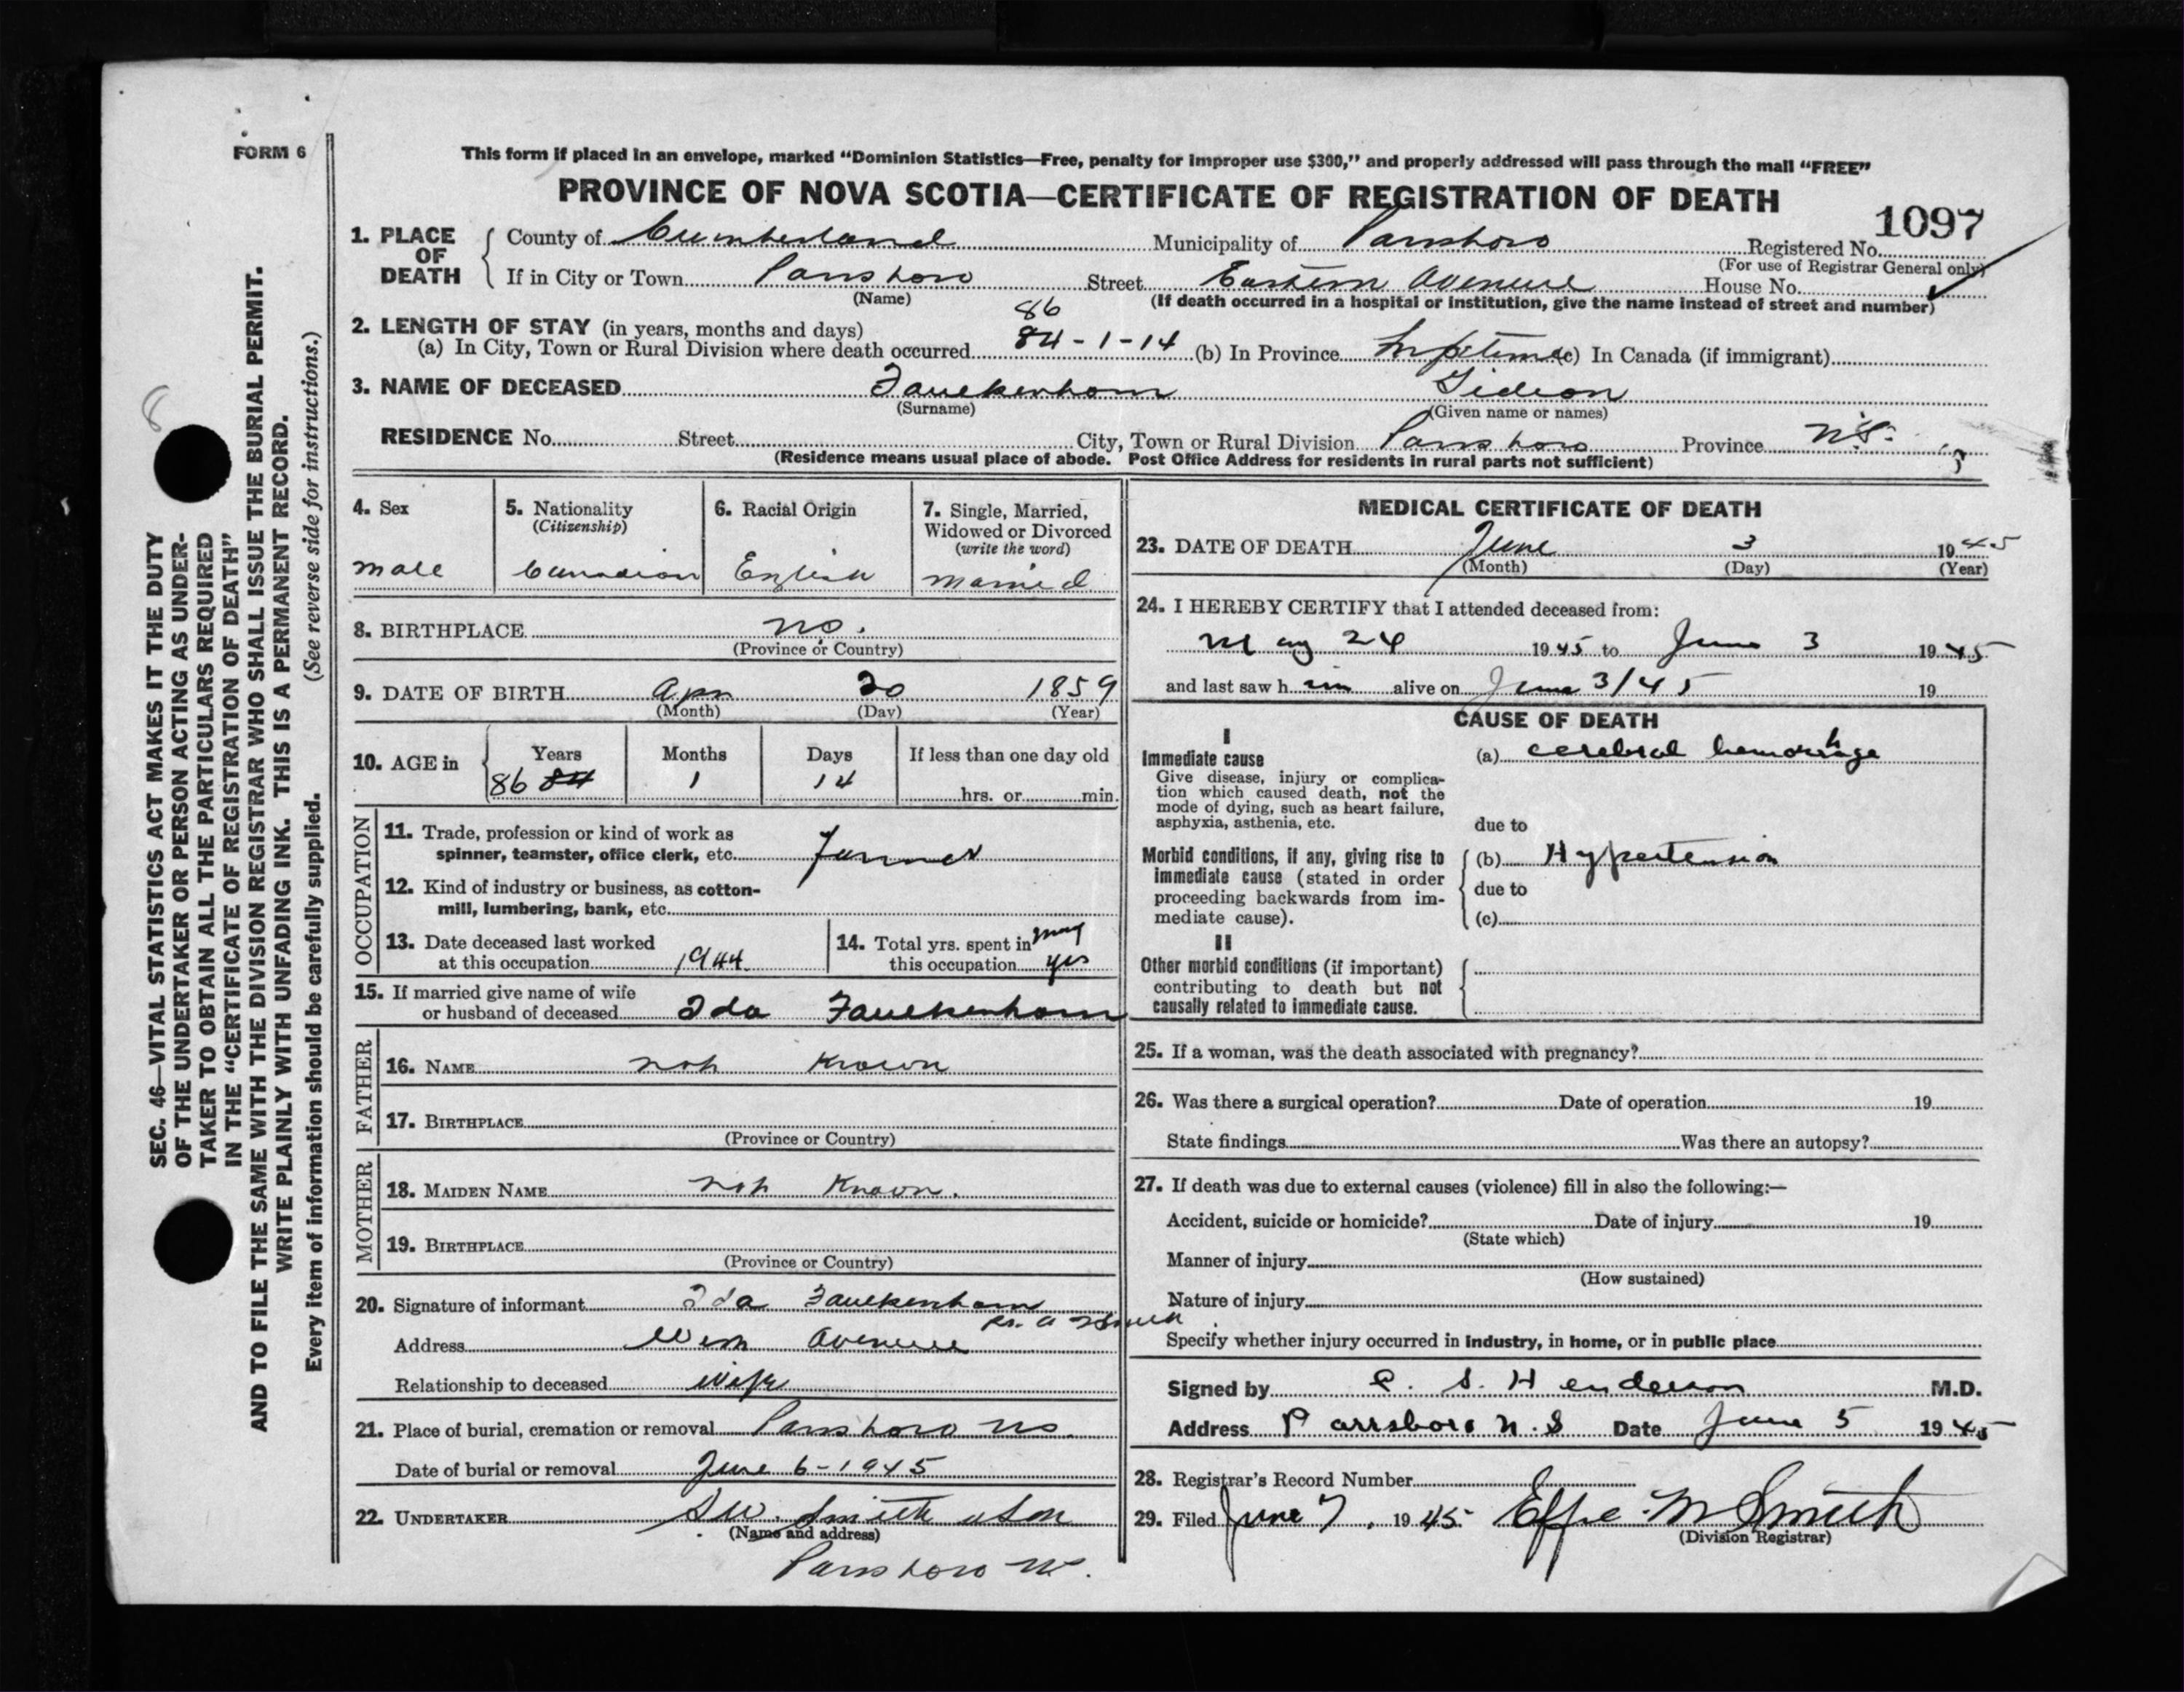 FORM 6
This form if placed in an envelope, marked “Dominion Statistics—Free, penalty for improper use $300,” and properly addressed will pass through the mail “FREE”
PROVINCE OF NOVA SCOTIA—CERTIFICATE OF REGISTRATION OF DEATH
1097
1. PLACE OF DEATH County of Cumberland Municipality of Parrsboro Registered No.
(For use of Registrar General only)
If in City or Town Parrsboro Street Eastern Avenue House No.
(Name) (If death occurred in a hospital or institution, give the name instead of street and number)
86
2. LENGTH OF STAY (in years, months and days)
(a) In City, Town or Rural Division where death occurred 84-1-14 (b) In Province Lifetime (c) In Canada (if immigrant)
3. NAME OF DECEASED Faulkenham Gideon
(Surname) (Given name or names)
RESIDENCE No. Street City, Town or Rural Division Parrsboro Province N.S.
(Residence means usual place of abode. Post Office Address for residents in rural parts not sufficient)
4. Sex 5. Nationality 6. Racial Origin 7. Single, Married,
(Citizenship) Widowed or Divorced
(write the word)
male Canadian English married
8. BIRTHPLACE N.S.
(Province or Country)
9. DATE OF BIRTH Apr 20 1859
(Month) (Day) (Year)
10. AGE in Years Months Days If less than one day old
86 84 1 14 hrs. or min.
OCCUPATION
11. Trade, profession or kind of work as
spinner, teamster, office clerk, etc. Farmer
12. Kind of industry or business, as cotton-
mill, lumbering, bank, etc.
13. Date deceased last worked
at this occupation 1944
14. Total yrs. spent in many
this occupation yrs
15. If married give name of wife
or husband of deceased Ida Faulkenham
FATHER
16. NAME not known
17. BIRTHPLACE
(Province or Country)
MOTHER
18. MAIDEN NAME not known.
19. BIRTHPLACE
(Province or Country)
20. Signature of informant Ida Faulkenham
Address Avenue
Relationship to deceased wife
21. Place of burial, cremation or removal Parrsboro NS
Date of burial or removal June 6-1945
22. UNDERTAKER Smith & Son
(Name and address)
Parrsboro NS.
MEDICAL CERTIFICATE OF DEATH
23. DATE OF DEATH June 3 1945
(Month) (Day) (Year)
24. I HEREBY CERTIFY that I attended deceased from:
May 24 1945 to June 3 1945
and last saw him alive on June 3/45 19
CAUSE OF DEATH
I
Immediate cause (a) cerebral hemorrhage
Give disease, injury or complica-
tion which caused death, not the
mode of dying, such as heart failure,
asphyxia, asthenia, etc.
due to
Morbid conditions, if any, giving rise to
immediate cause (stated in order
proceeding backwards from im-
mediate cause).
(b) Hypertension
due to
(c)
II
Other morbid conditions (if important)
contributing to death but not
causally related to immediate cause.
25. If a woman, was the death associated with pregnancy?
26. Was there a surgical operation? Date of operation 19
State findings Was there an autopsy?
27. If death was due to external causes (violence) fill in also the following:—
Accident, suicide or homicide? Date of injury 19
(State which)
Manner of injury
(How sustained)
Nature of injury
Specify whether injury occurred in industry, in home, or in public place
Signed by S. Henderson M.D.
Address Parrsboro N.S Date June 5 1945
28. Registrar's Record Number
29. Filed June 7, 1945 Effie M Smith
(Division Registrar)
SEC. 46—VITAL STATISTICS ACT MAKES IT THE DUTY
OF THE UNDERTAKER OR PERSON ACTING AS UNDER-
TAKER TO OBTAIN ALL THE PARTICULARS REQUIRED
IN THE “CERTIFICATE OF REGISTRATION OF DEATH”
AND TO FILE THE SAME WITH THE DIVISION REGISTRAR WHO SHALL ISSUE THE BURIAL PERMIT.
WRITE PLAINLY WITH UNFADING INK. THIS IS A PERMANENT RECORD.
Every item of information should be carefully supplied. (See reverse side for instructions.)
8